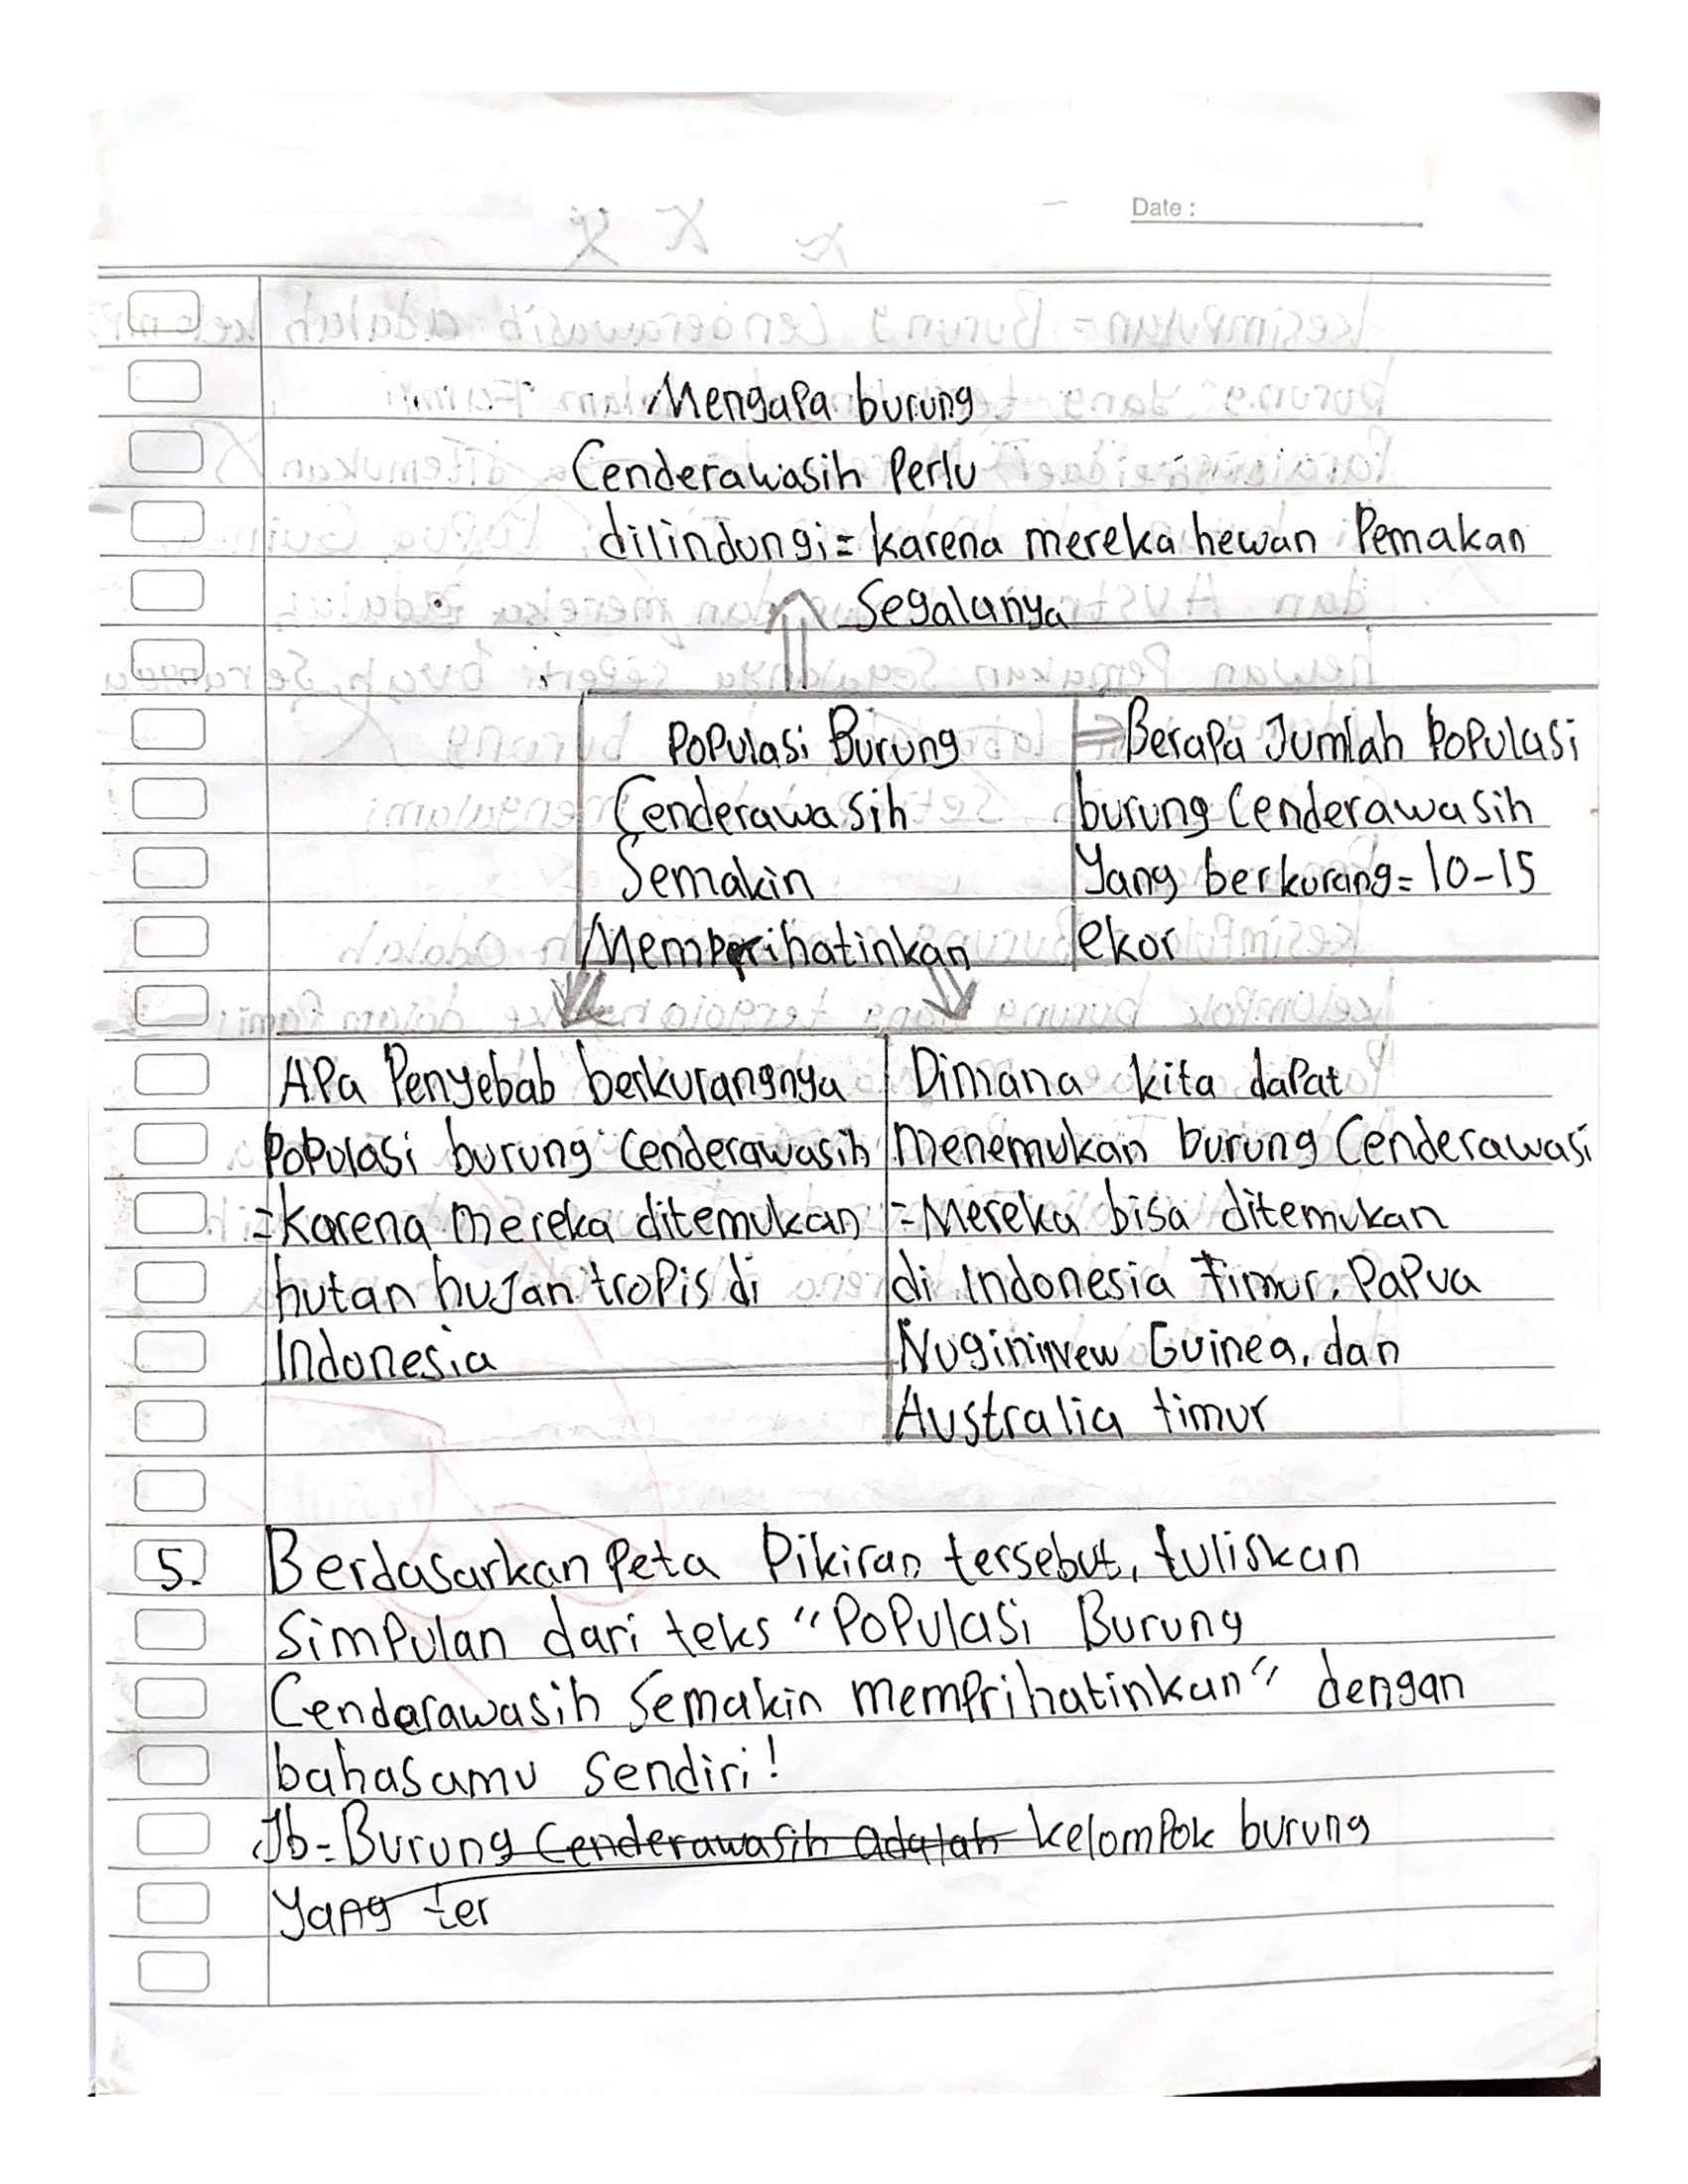 Date :
Mengapa burung
Cenderawasih Perlu
dilindungi = karena mereka hewan Pemakan
Segalanya
Populasi Burung
Cenderawasih
Semakin
Memprihatinkan
Berapa Jumlah Populasi
burung Cenderawasih
Yang berkurang = 10-15
ekor
Apa Penyebab berkurangnya
Populasi burung Cenderawasih
= Karena mereka ditemukan
hutan hujan tropis di
Indonesia
Dimana kita dapat
Menemukan burung Cenderawasi
= Mereka bisa ditemukan
di Indonesia Timur, Papua
Guinea, dan
Australia timur
5. Berdasarkan Peta Pikiran tersebut, tuliskan
Simpulan dari teks "Populasi Burung
Cenderawasih Semakin memprihatinkan" dengan
bahasamu sendiri!
Jb = Burung Cenderawasih adalah kelompok burung
Yang ter